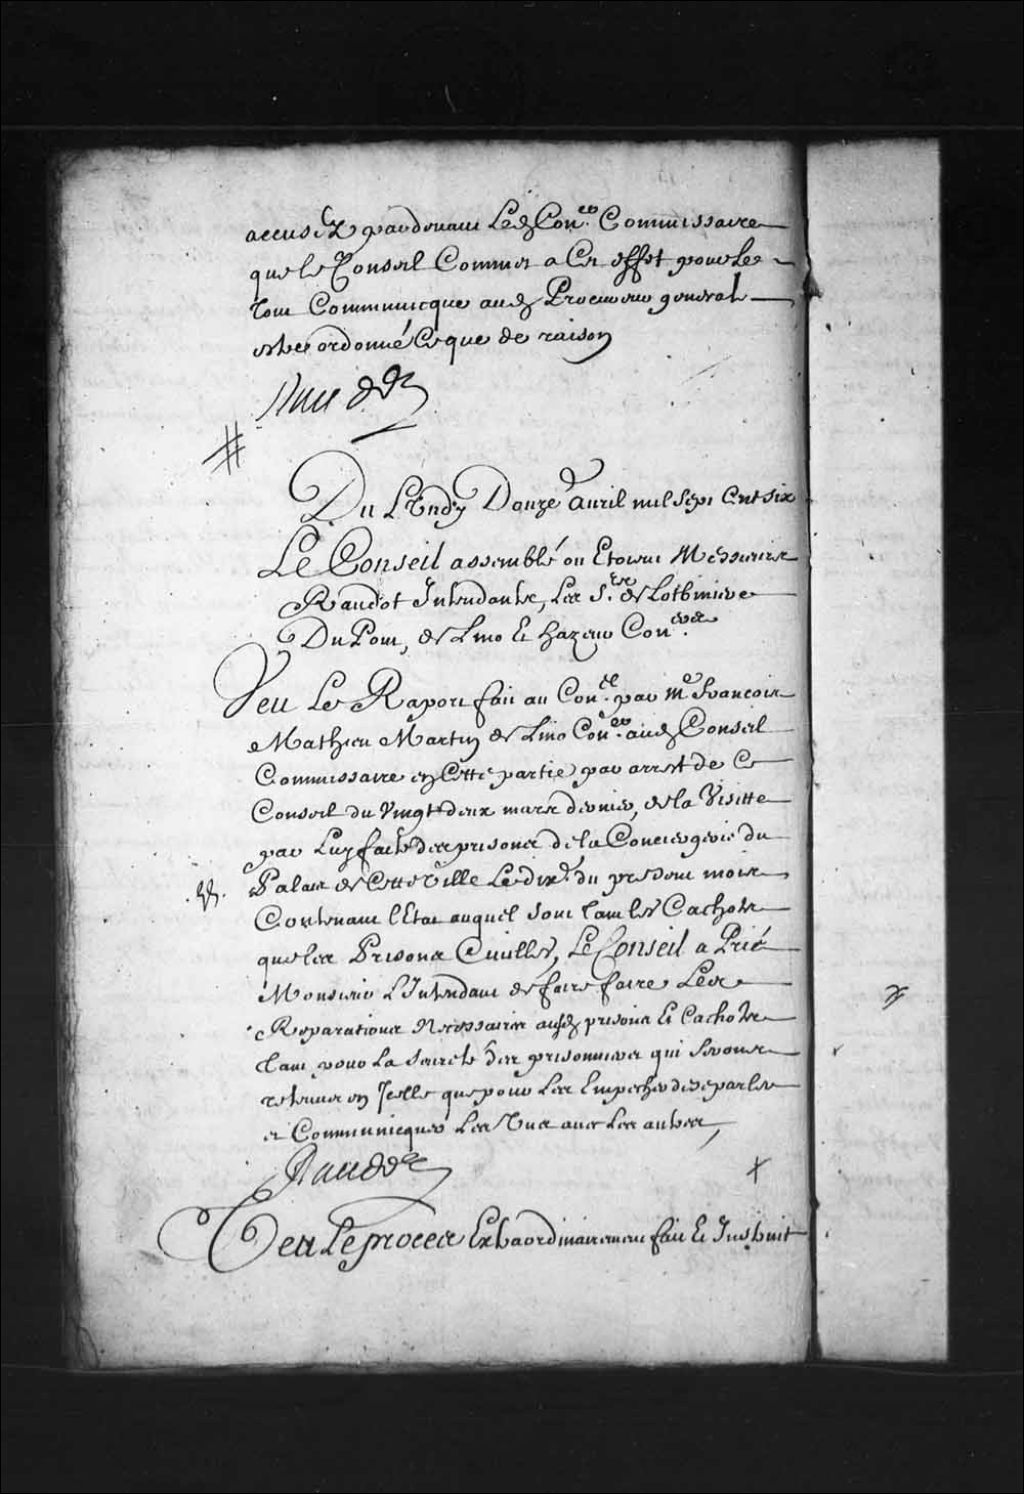 accusez pardevant Led Coner Commissaire
que le Conseil Commet a Cet effet pour le
tout Communicqué aud Procureur general
estre ordonné Ce que de raison
Raudot
Du LUndy Douze auril mil Sept Cent six
Le Conseil assemblé ou Etoient Messieurs
Raudot Intendants, Les Srs de Lotbiniere
Dupont, de Lino Et hazeur Coners
Veu Le Raport fait au Conel par Me Francois
Mathieu Martin de Lino Coner aud Conseil
Commissaire en Cette partie par arrest de Ce
Conseil du Vingt deux mars dernier, de la Visitte
par Luy faite des prisons de la Conciergerie du
Palais de Cette Ville Le dixe du present mois
Contenant l'Etat auquel sont tant les Cachots
que les Prisons Ciuilles, Le Conseil a Prié
Monsieur L'Intendant de faire faire Les
Reparations Necessaires ausd prisons Et Cachots
tant pour La Seureté des prisonniers qui Seront
retenus en Icelle que pour Les Empecher de se parler
et Communicquer Les Uns auec Les autres,
Raudot
Veu Le procez Extraordinairement fait Et Instruit